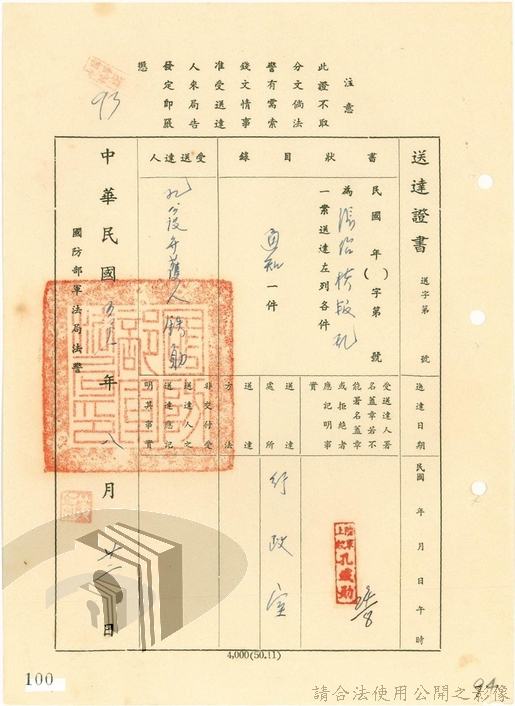 注意
此證不取
分文倘法
警有需索
錢文情事
准受送達
人來局告
發定即嚴
懲
93
送達證書
送字第 號
書狀目錄
民國 年( )字第 號
為 叛亂
一案送達左列各件
通知一件
受送達人
公設辯護人
中華民國 年八月 日
國防部軍法局法警
送達日期
民國 年 月 日 午 時
受送達人署
名蓋章若不
能署名蓋章
或拒絕者
應記明事
實
陸軍上校孔繼勛
送達處所
行政室
送達方法
非交付受
送達人之
送達應記
明其事實
4,000(50.11)
100
94
請合法使用公開之影像